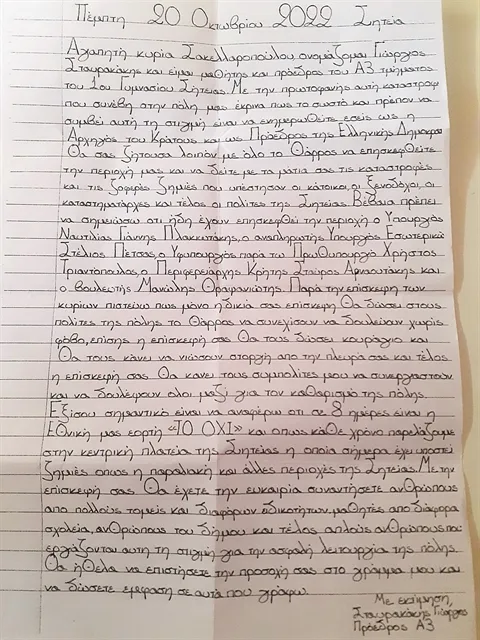 Πέμπτη 20 Οκτωβρίου 2022 Σητεία
Αγαπητή κυρία Σακελλαροπούλου, ονομάζομαι Γιώργος
Σταυρακάκης και είμαι μαθητής και πρόεδρος του Α3 τμήματος
του 1ου Γυμνασίου Σητείας. Με την πρωτοφανής αυτή καταστροφή
που συνέβη στην πόλη μας έκρινα πως το σωστό και πρέπον να
συμβεί αυτή τη στιγμή είναι να ενημερωθείτε εσείς ως η
Αρχηγός του Κράτους και ως Πρόεδρος της Ελληνικής Δημοκρα
Θα σας ζητούσα λοιπόν με όλο το Θάρρος να επησκεφθείτε
την περιοχή μας και να δείτε με τα μάτια σας τις καταστροφές
και τις ζοφερές ζημιές που υπέστησαν οι κάτοικοι, οι ξενοδόχοι, οι
καταστηματάρχες και τέλος οι πολίτες της Σητείας. Βέβαια πρέπει
να σημειώσω οτι ήδη έχουν επησκεφθεί την περιοχή ο Υπουργός
Ναυτιλίας Γιάννης Πλακιωτάκης, ο αναπληρωτής Υπουργός Εσωτερικώ
Στέλιος Πέτσας, ο Υφυπουργός παρά τω Πρωθυπουργό Χρήστος
Τριαντόπουλος, ο Περιφερειάρχης Κρήτης Σταύρος Αρναουτάκης και
ο βουλευτής Μανώλης Θραψανιώτης. Παρά την επίσκεψη των
κυρίων πιστεύω πως μόνο η δικιά σας επίσκεψη Θα δώσει στους
πολίτες της πόλης το Θάρρος να συνεχίσουν να δουλεύουν χωρίς
φόβο, επίσης η επίσκεψή σας Θα τους δώσει κουράγιο και
Θα τους κάνει να νιώσουν στοργή απο την πλευρά σας και τέλος
η επίσκεψή σας Θα κανει τους συμπολίτες μου να συνεργαστούν
και να δουλέψουν όλοι μαζί για τον καθαρισμό της πόλης.
Εξίσου σημαντικό είναι να αναφέρω οτι σε 8 ημέρες είναι η
Εθνική μας εορτή «ΤΟ ΟΧΙ» και οπως κάθε χρόνο παρελάζουμε
στην κεντρική πλατεία της Σητείας η οποία σήμερα έχει υποστεί
ζημιές οπως η παραλιακή και άλλες περιοχές της Σητείας. Με την
επίσκεψή σας Θα έχετε την ευκαιρία συναντήσετε ανθρώπους
απο πολλούς τομείς και διαφόρων ειδικοτήτων, μαθητές απο διάφορα
σχολεία, ανθρώπους του δήμου και τέλος απλούς ανθρώπους που
εργάζονται αυτη τη στιγμή για την ασφαλή λειτουργία της πόλης.
Θα ήθελα να επιστήσετε την προσοχή σας στο γράμμα μου και
να δώσετε έμφαση σε αυτά που γράφω.
Με εκτίμηση,
Σταυρακάκης Γιώργος
Πρόεδρος Α3